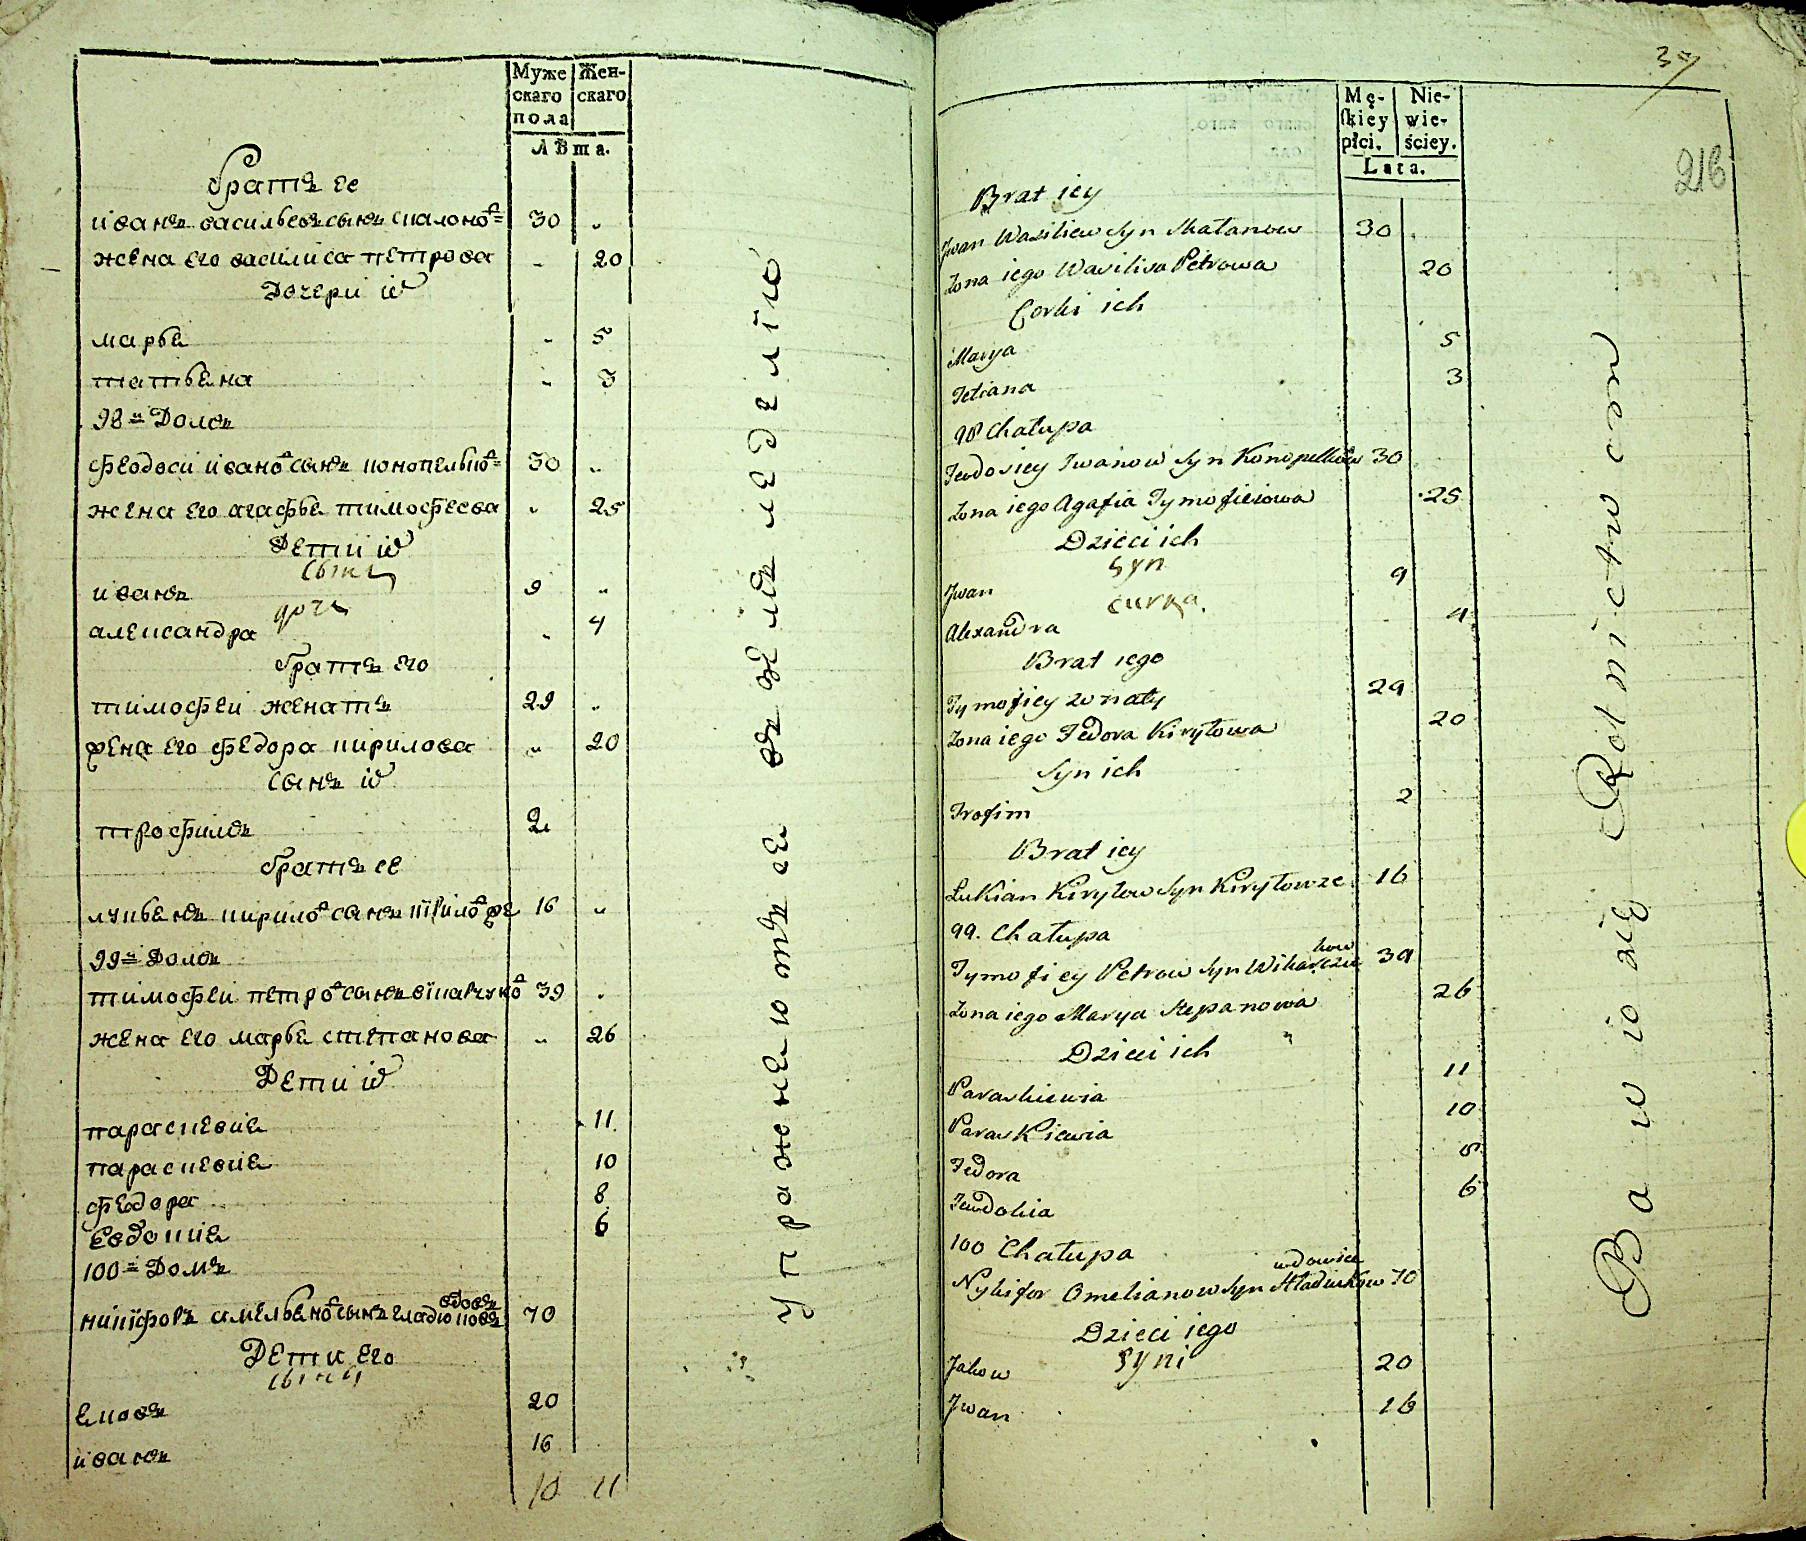 Муже
скаго
пола
Жен-
скаго
Лѣта.
братъ ее
иванъ васильевъ сынъ скалоновъ 30 „
жена его василиса петрова „ 20
Дочери их
марья „ 5
татьяна „ 3
98 й Домъ
феодоси иванов сынъ конопельков 30 „
жена его агафья тимофеева „ 25
Дети их
сын
иванъ 9 „
дочь
александра „ 4
братъ его
тимофеи женатъ 29 „
жена его федора кирилова „ 20
сынъ их
трофимъ 2
братъ ее
лукьянъ кирилов сынъ 16 „
99 й Домъ
тимофеи петров сынъ викарчуков 39 „
жена его марья степанова „ 26
Дети их
параскевия 11
параскевия 10
федора 8
Евдокия 6
100 й Домъ
вдовъ
никифоръ амельянов сынъ гладковъ 70
Дети его
сыны
яковъ 20
иванъ 16
10 11
упражняются въ земледелїю
37
216
Mę-
skiey
płci.
Nie-
wie-
ściey.
Lata.
Brat iey
Jwan Wasiliew syn Skałanow 30
Żona iego Wasilisa Petrowa 20
Corki ich
Marya 5
Tetiana 3
98 Chałupa
Teodosiey Jwanow syn Konopelkow 30
Żona iego Agafia Tymofieiowa 25
Dzieci ich
Syn
Jwan 9
curka.
Alexandra 4
Brat iego
Tymofiey żonaty 29
Żona iego Fedora Kiryłowa 20
Syn ich
Trofim 2
Brat iey
Łukian Kiryłow syn Kiryłow że 16
99. Chałupa
Tymofiey Petrow syn Wikarczukow 39
Żona iego Marya Stepanowa 26
Dzieci ich
Paraskiewia 11
Paraskiewia 10
Fedora 8
Jewdokia 6
100 Chałupa
wdowiec
Nykifor Omelianow syn Hładunkow 70
Dzieci iego
Syni
Jakow 20
Jwan 16
Bawio się Rolnictwom